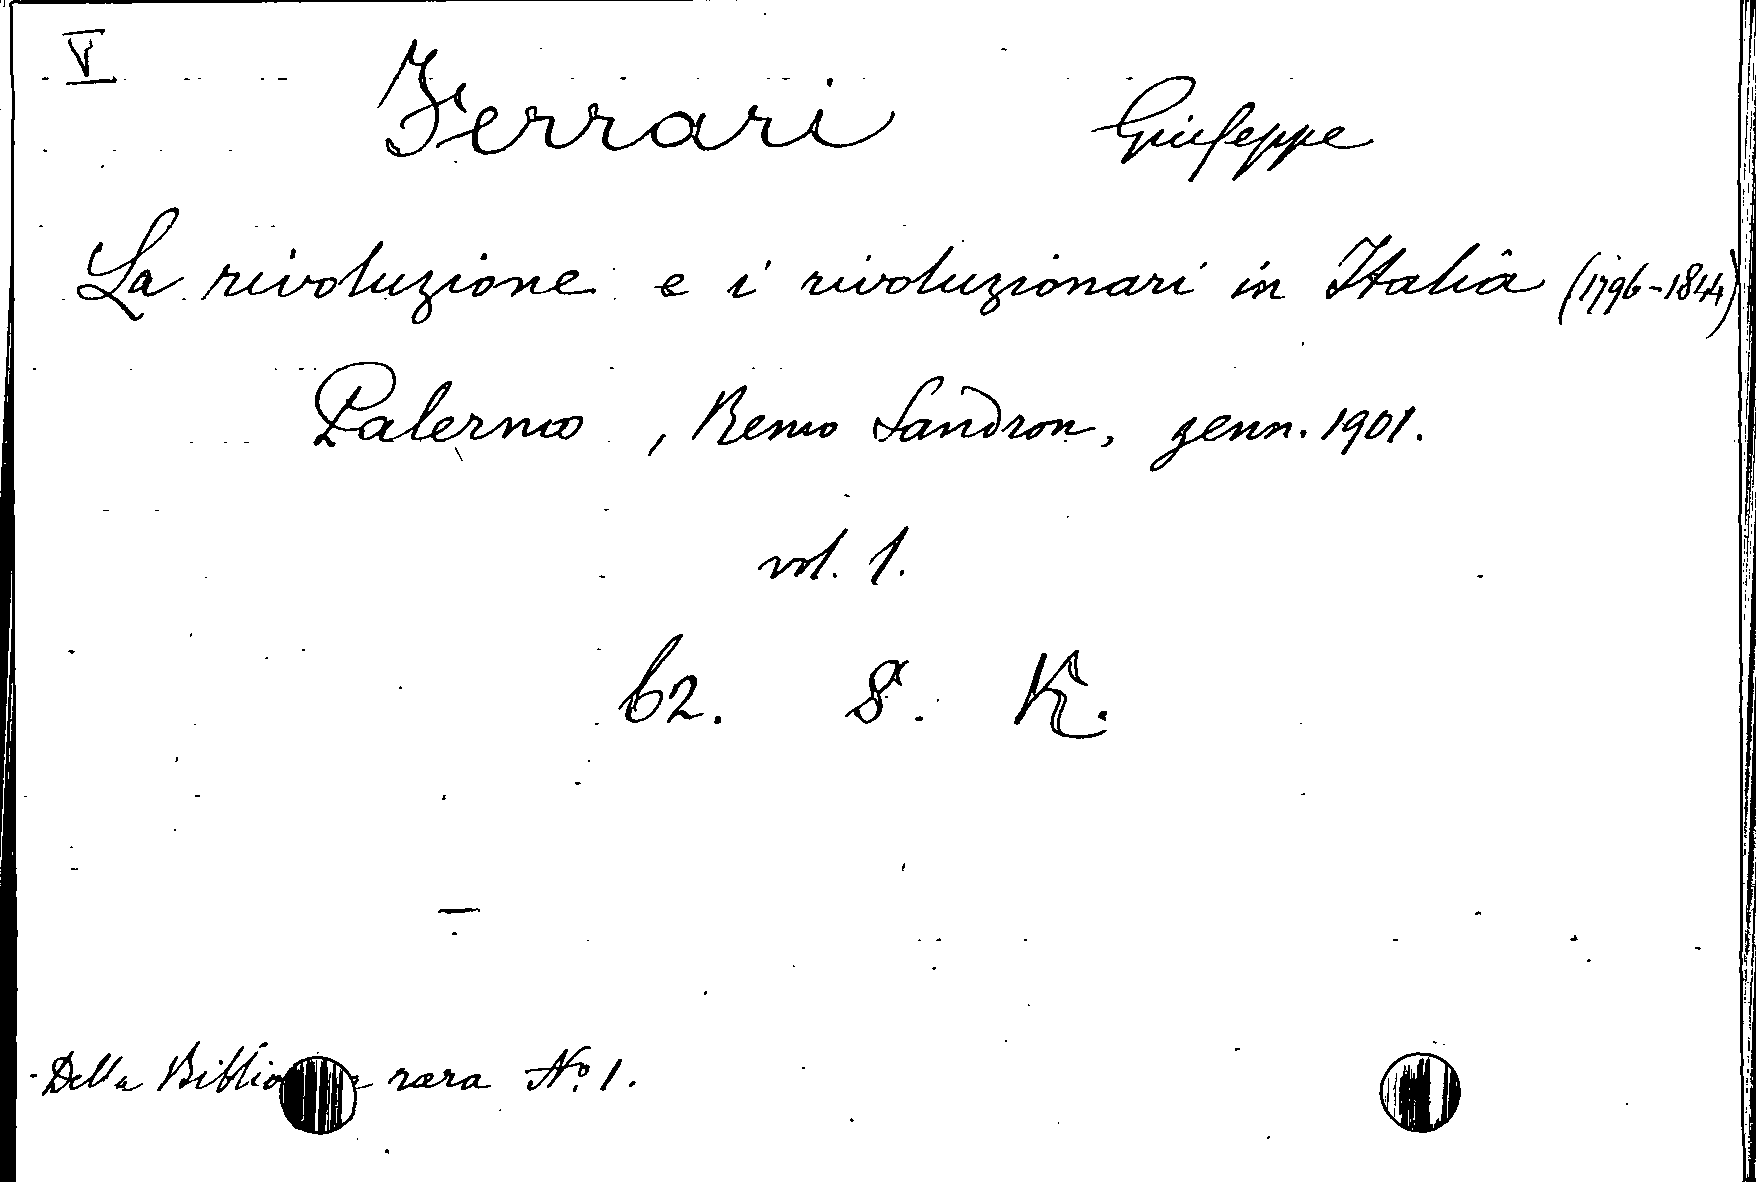 V
Ferrari Giuseppe
La rivoluzione e i rivoluzionari in Italia (1796-1844)
Palermo, Remo Sandron, genn. 1901.
vol. 1.
62. 8. K.
Della rara N.º 1.